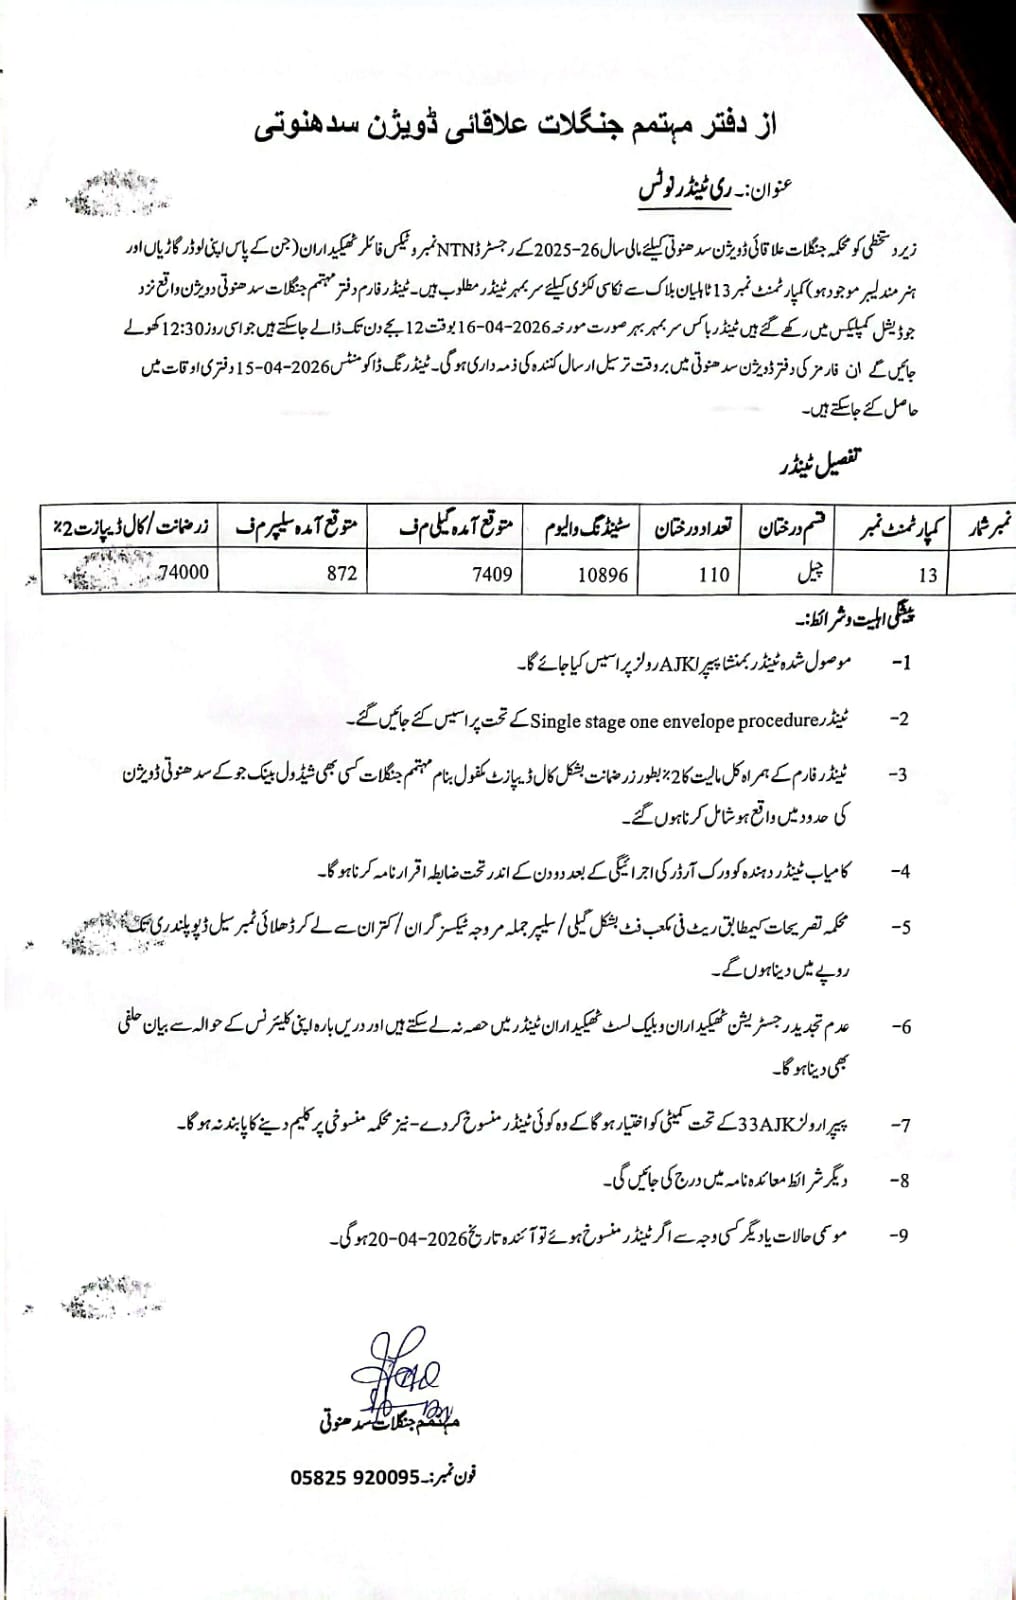 از دفتر مہتمم جنگلات علاقائی ڈویژن سدھنوتی
عنوان:۔ ری ٹینڈر نوٹس
زیر دستخطی کو محکمہ جنگلات علاقائی ڈویژن سدھنوتی کیلئے مالی سال 26-2025 کے رجسٹرڈ NTN نمبر و ٹیکس فائلر ٹھیکیداران (جن کے پاس اپنی لوڈر گاڑیاں اور
ہنر مند لیبر موجود ہو) کمپارٹمنٹ نمبر 13 ٹاہلیان بلاک سے نکاسی لکڑی کیلئے سر بمہر ٹینڈر مطلوب ہیں۔ ٹینڈر فارم دفتر مہتمم جنگلات سدھنوتی دویژن واقع نزد
جوڈیشل کمپلیکس میں رکھے گئے ہیں ٹینڈر باکس سر بمہر بہر صورت مورخہ 2026-04-16 بوقت 12 بجے دن تک ڈالے جا سکتے ہیں جو اسی روز 12:30 کھولے
جائیں گے ان فارمز کی دفتر ڈویژن سدھنوتی میں بروقت ترسیل ارسال کنندہ کی ذمہ داری ہو گی۔ ٹینڈرنگ ڈاکومنٹس 2026-04-15 دفتری اوقات میں
حاصل کئے جا سکتے ہیں۔
تفصیل ٹینڈر
نمبر شمار کمپارٹمنٹ نمبر قسم درختان تعداد درختان سٹینڈنگ والیوم متوقع آمدہ گیلی م ف متوقع آمدہ سلیپر م ف زر ضمانت/کال ڈیپازٹ 2%
13 چیل 110 10896 7409 872 74000
پیشگی اہلیت و شرائط:۔
1- موصول شدہ ٹینڈر بمنشا پیپرا AJK رولز پراسیس کیا جائے گا۔
2- ٹینڈر Single stage one envelope procedure کے تحت پراسیس کئے جائیں گئے۔
3- ٹینڈر فارم کے ہمراہ کل مالیت کا 2% بطور زر ضمانت بشکل کال ڈیپازٹ مکفول بنام مہتمم جنگلات کسی بھی شیڈول بینک جو کے سدھنوتی ڈویژن
کی حدود میں واقع ہو شامل کرنا ہوں گئے۔
4- کامیاب ٹینڈر دہندہ کو ورک آرڈر کی اجرائیگی کے بعد دو دن کے اندر تحت ضابطہ اقرار نامہ کرنا ہو گا۔
5- محکمہ تصریحات کیمطابق ریٹ فی مکعب فٹ بشکل گیلی/سلیپر جملہ مروجہ ٹیکسز گران/کتران سے لے کر ڈھلائی ٹمبر سیل ڈپو پلندری تک
روپے میں دینا ہوں گے۔
6- عدم تجدید رجسٹریشن ٹھیکیداران و بلیک لسٹ ٹھیکیداران ٹینڈر میں حصہ نہ لے سکتے ہیں اور دریں بارہ اپنی کلیئرنس کے حوالہ سے بیان حلفی
بھی دینا ہو گا۔
7- پیپرا رولز 33AJK کے تحت کمیٹی کو اختیار ہو گا کے وہ کوئی ٹینڈر منسوخ کر دے- نیز محکمہ منسوخی پر کلیم دینے کا پابند نہ ہو گا۔
8- دیگر شرائط معائدہ نامہ میں درج کی جائیں گی۔
9- موسمی حالات یا دیگر کسی وجہ سے اگر ٹینڈر منسوخ ہوئے تو آئندہ تاریخ 2026-04-20 ہو گی۔
مہتمم جنگلات سدھنوتی
فون نمبر:۔ 05825 920095